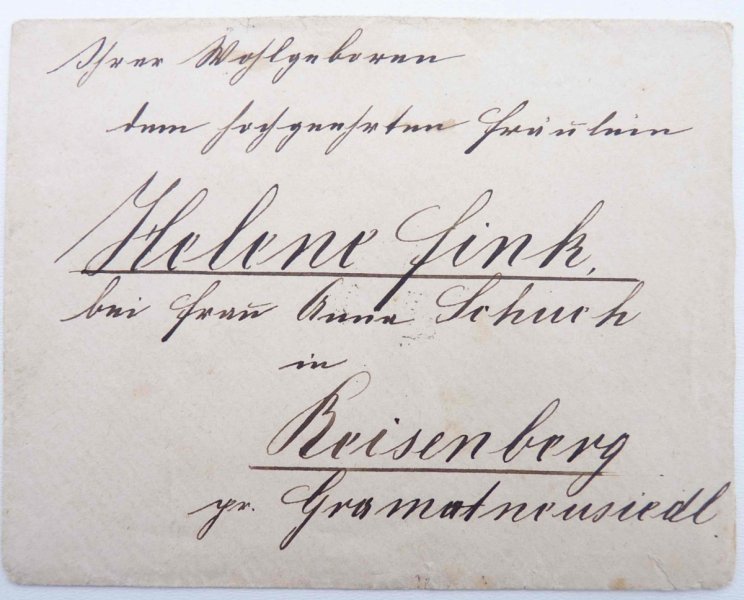 Ihrer Wohlgeboren
dem hochgeehrten Fräulein
Helene Fink,
bei Frau Anna Schuch
in
Reisenberg
pr. Gramatneusiedl